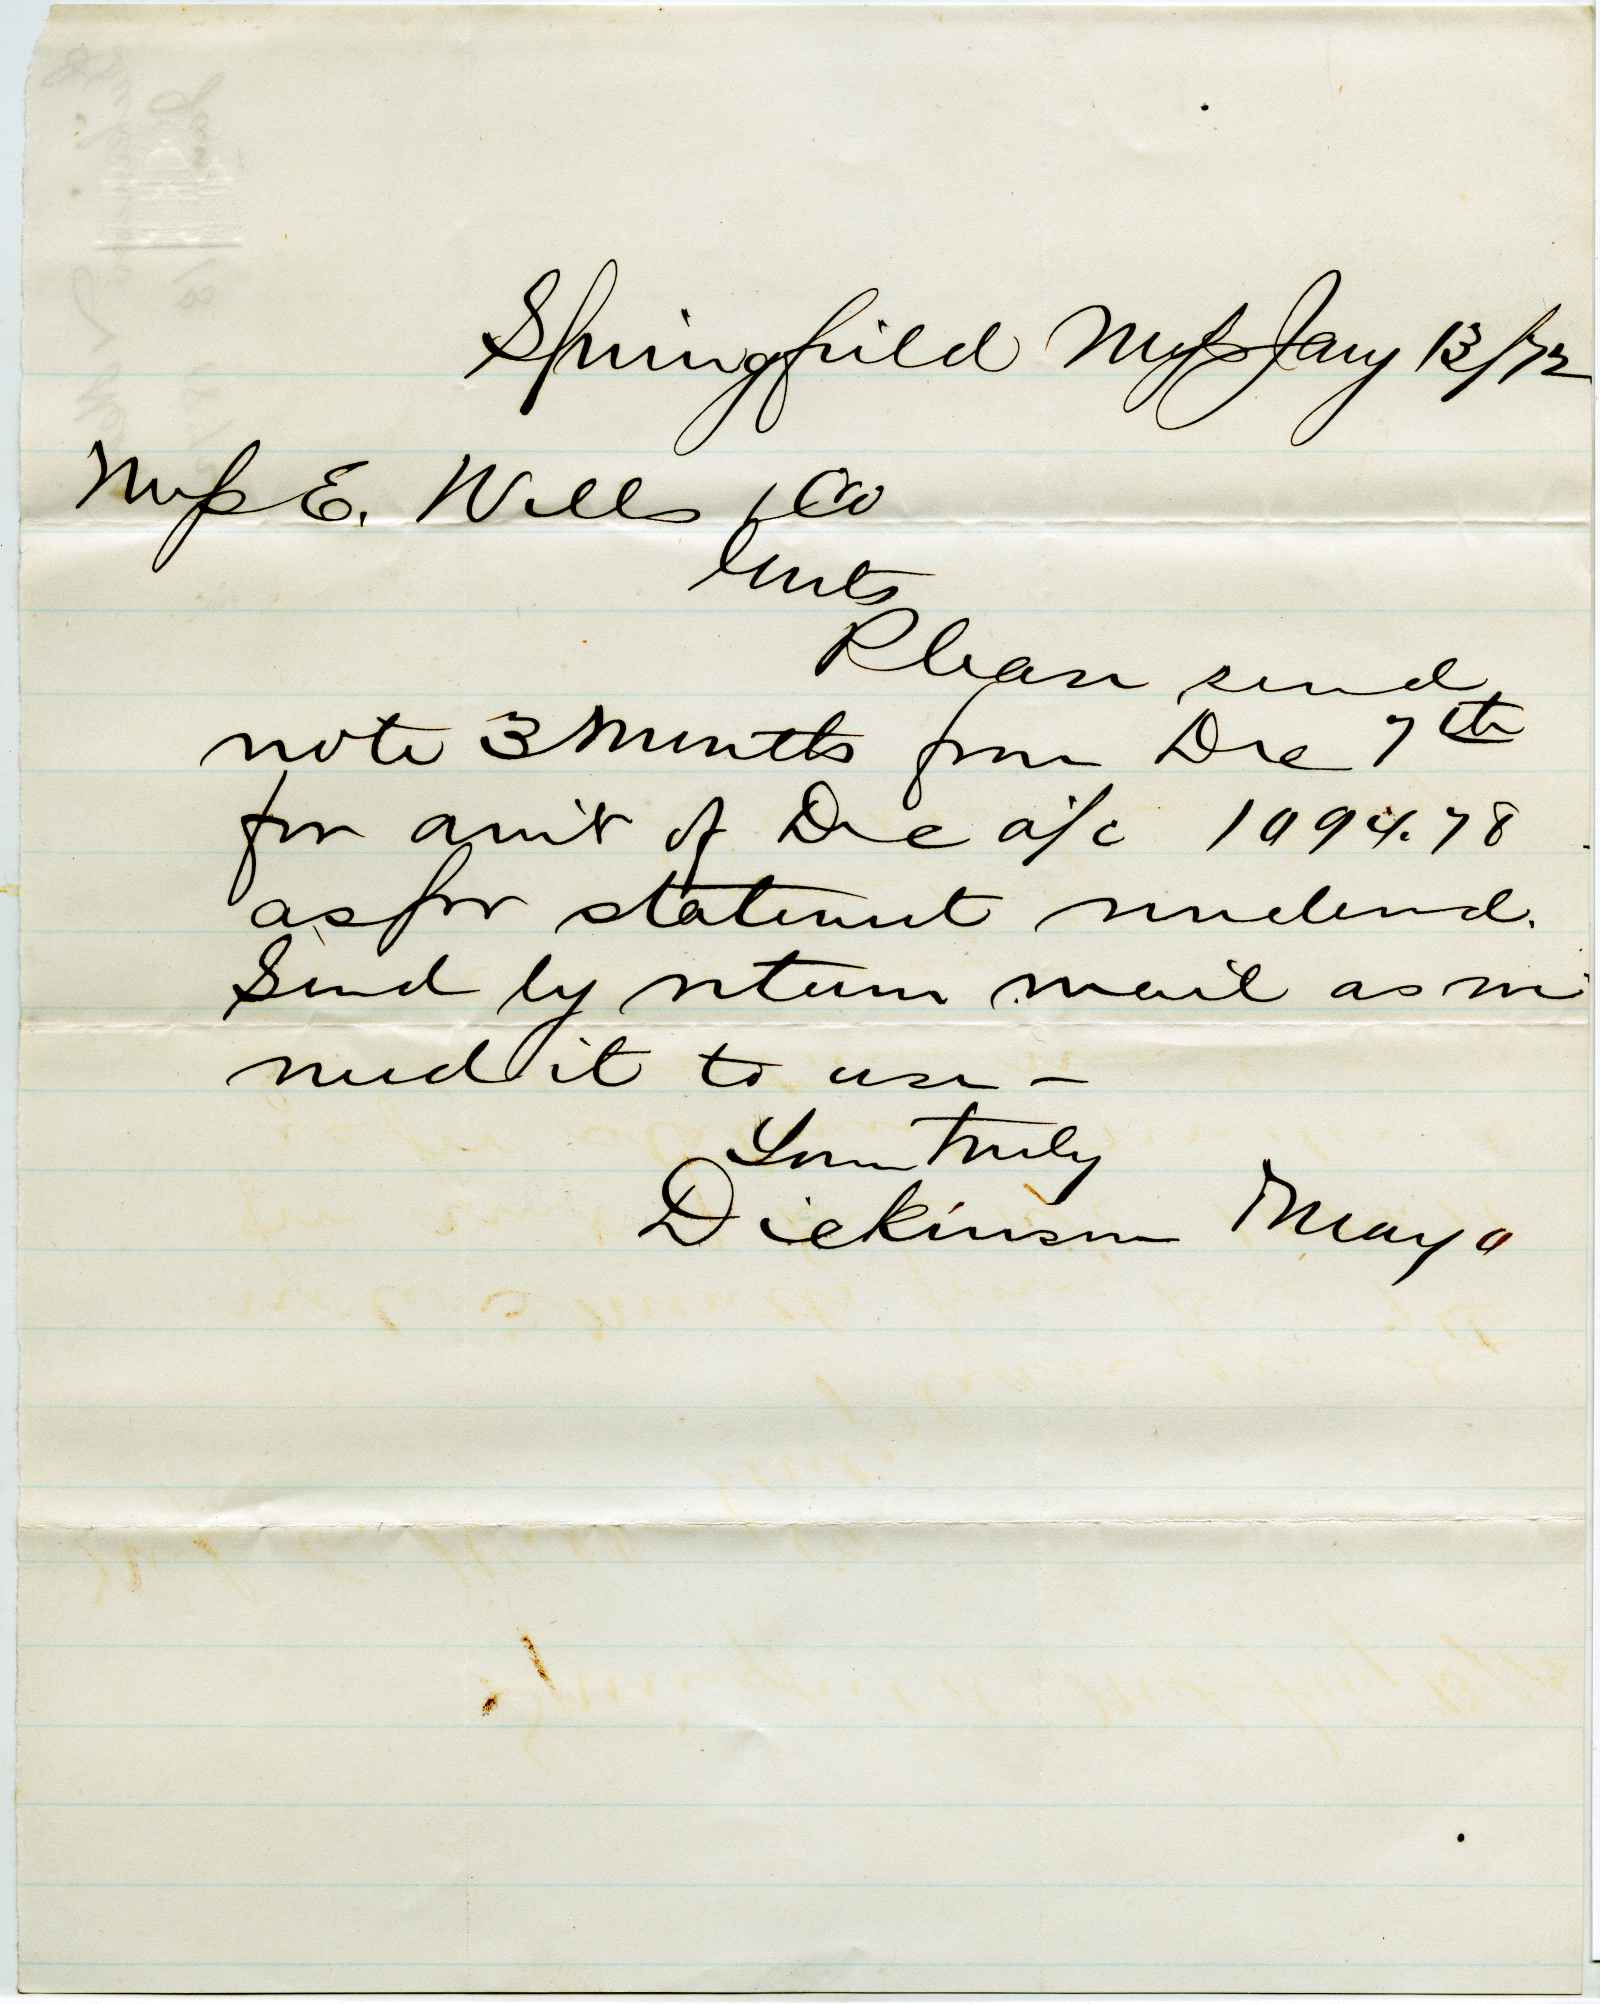 Springfield Mass Jany 13/72
Mess E. Wells & Co
Gents
Please send
note 3 Months from Dec 7th
for amt of Dec a/c 1094.78
as per statement rendered.
Send by return mail as we
need it to use –
Yours truly
Dickinson & Mayo